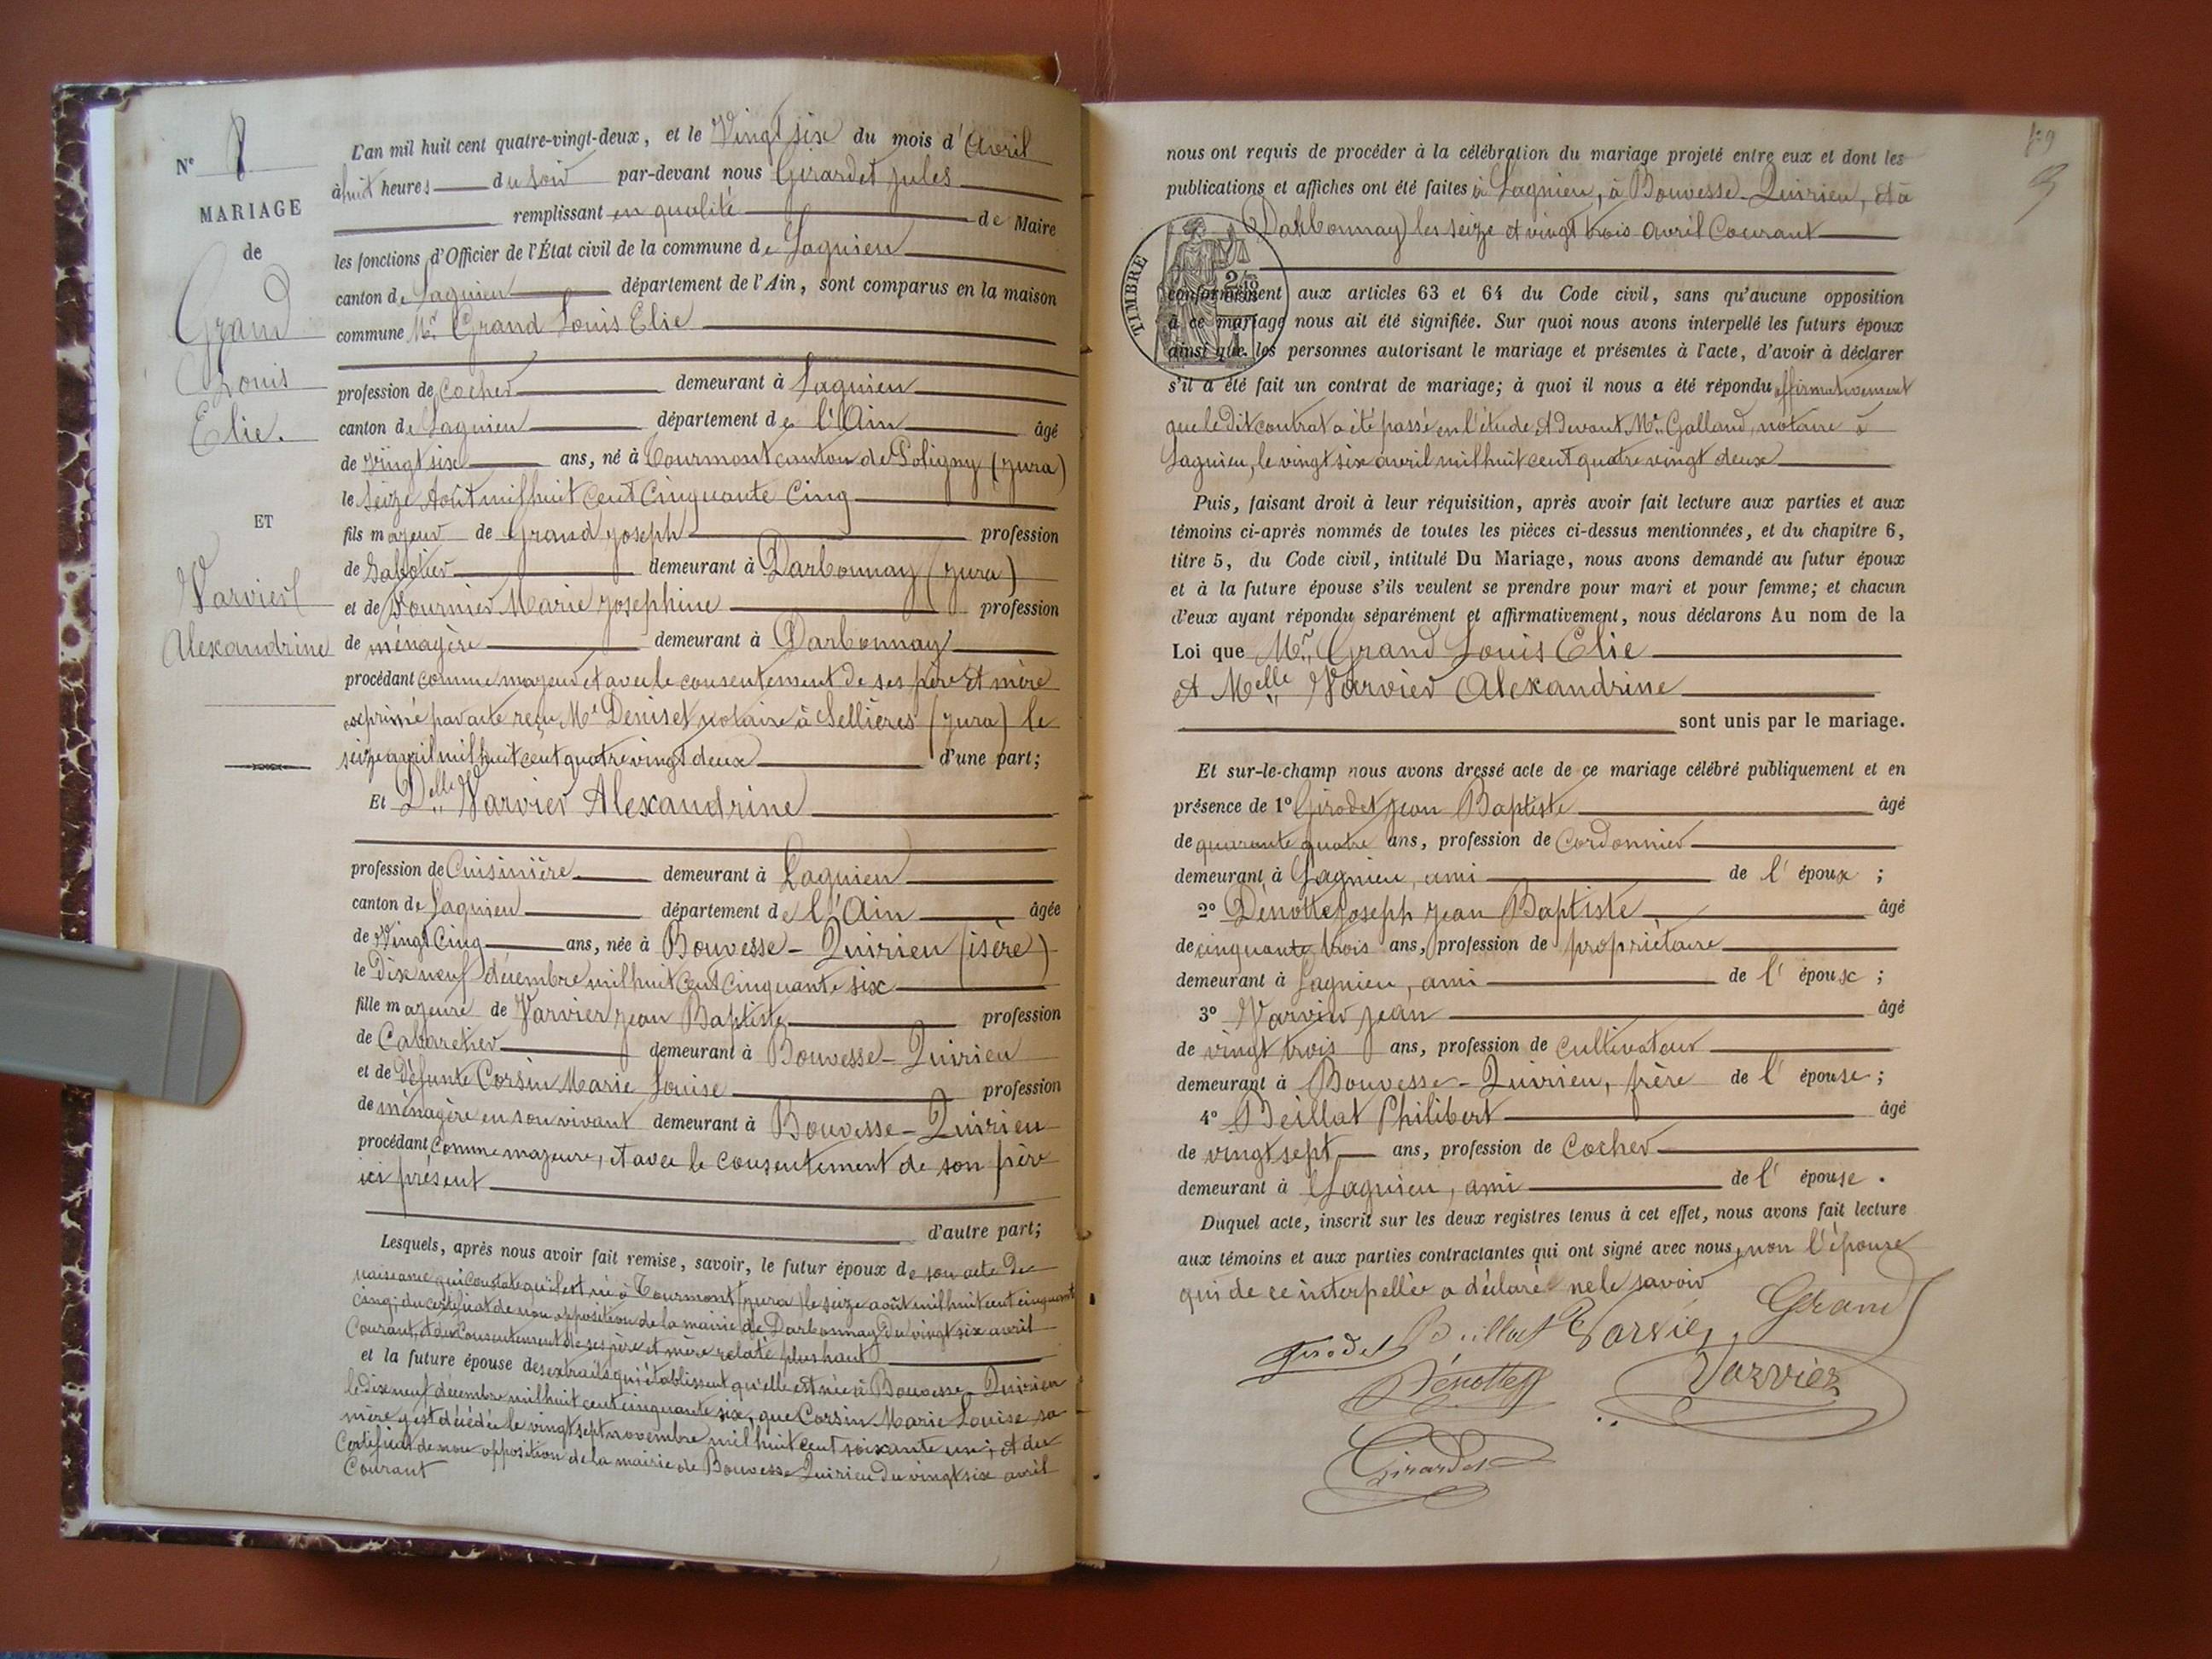 N° 8
MARIAGE
de
Grand
Louis
Elie.
ET
Varvier
Alexandrine
L'an mil huit cent quatre-vingt-deux, et le Vingt six du mois d'Avril
à huit heures du soir par-devant nous Girardet Jules
remplissant en qualité de Maire
les fonctions d'Officier de l'État civil de la commune de Lagnieu
canton de Lagnieu département de l'Ain, sont comparus en la maison
commune Mr. Grand Louis Elie
profession de Cocher demeurant à Lagnieu
canton de Lagnieu département de l'Ain âgé
de vingt six ans, né à Tourmont canton de Poligny (Jura)
le Seize Août mil huit cent cinquante cinq
fils majeur de Grand Joseph profession
de Sabotier demeurant à Darbonnay (Jura)
et de Fournier Marie Josephine profession
de ménagère demeurant à Darbonnay
procédant comme majeur et avec le consentement de ses père et mère
exprimé par acte reçu Me Deniset notaire à Sellières (Jura) le
seize avril mil huit cent quatre vingt deux d'une part;
Et Delle Varvier Alexandrine
profession de Cuisinière demeurant à Lagnieu
canton de Lagnieu département de l'Ain âgée
de Vingt Cinq ans, née à Bouvesse-Quirieu (isère)
le Dix neuf décembre mil huit cent cinquante six
fille majeure de Varvier Jean Baptiste profession
de Cabaretier demeurant à Bouvesse-Quirieu
et de défunte Corsin Marie Louise profession
de ménagère en son vivant demeurant à Bouvesse-Quirieu
procédant comme majeure, et avec le consentement de son père
ici présent
d'autre part;
Lesquels, après nous avoir fait remise, savoir, le futur époux de son acte de
naissance qui constate qu'il est né à Tourmont (Jura) le seize août mil huit cent cinquante
cinq; du certificat de non opposition de la mairie de Darbonnay du vingt six avril
Courant, et du Consentement de ses père et mère relaté plus haut
et la future épouse des extraits qui établissent qu'elle est née à Bouvesse-Quirieu
le dix neuf décembre mil huit cent cinquante six, que Corsin Marie Louise sa
mère y est décédée le vingt sept novembre mil huit cent soixante un; et du
Certificat de non opposition de la mairie de Bouvesse Quirieu du vingt six avril
Courant
nous ont requis de procéder à la célébration du mariage projeté entre eux et dont les
publications et affiches ont été faites à Lagnieu, à Bouvesse-Quirieu, et à
Darbonnay les seize et vingt trois avril Courant
TIMBRE
conformément aux articles 63 et 64 du Code civil, sans qu'aucune opposition
à ce mariage nous ait été signifiée. Sur quoi nous avons interpellé les futurs époux
ainsi que les personnes autorisant le mariage et présentes à l'acte, d'avoir à déclarer
s'il a été fait un contrat de mariage; à quoi il nous a été répondu affirmativement
que le dit contrat a été passé en l'étude et devant Me. Galland, notaire à
Lagnieu, le vingt six avril mil huit cent quatre vingt deux
Puis, faisant droit à leur réquisition, après avoir fait lecture aux parties et aux
témoins ci-après nommés de toutes les pièces ci-dessus mentionnées, et du chapitre 6,
titre 5, du Code civil, intitulé Du Mariage, nous avons demandé au futur époux
et à la future épouse s'ils veulent se prendre pour mari et pour femme; et chacun
d'eux ayant répondu séparément et affirmativement, nous déclarons Au nom de la
Loi que Mr. Grand Louis Elie
et Melle Varvier Alexandrine
sont unis par le mariage.
Et sur-le-champ nous avons dressé acte de ce mariage célébré publiquement et en
présence de 1° Girodet Jean Baptiste âgé
de quarante quatre ans, profession de Cordonnier
demeurant à Lagnieu, ami de l'époux ;
2° Dénotte Joseph Jean Baptiste âgé
de cinquante trois ans, profession de propriétaire
demeurant à Lagnieu, ami de l'époux ;
3° Varvier Jean âgé
de vingt trois ans, profession de Cultivateur
demeurant à Bouvesse-Quirieu, frère de l'épouse ;
4° Beillat Philibert âgé
de vingt sept ans, profession de Cocher
demeurant à Lagnieu, ami de l'épouse .
Duquel acte, inscrit sur les deux registres tenus à cet effet, nous avons fait lecture
aux témoins et aux parties contractantes qui ont signé avec nous, non l'épouse
qui de ce interpellée a déclaré ne le savoir
Grand
Girodet Beillat P Varvier
Dénotte Varvier
Girardet